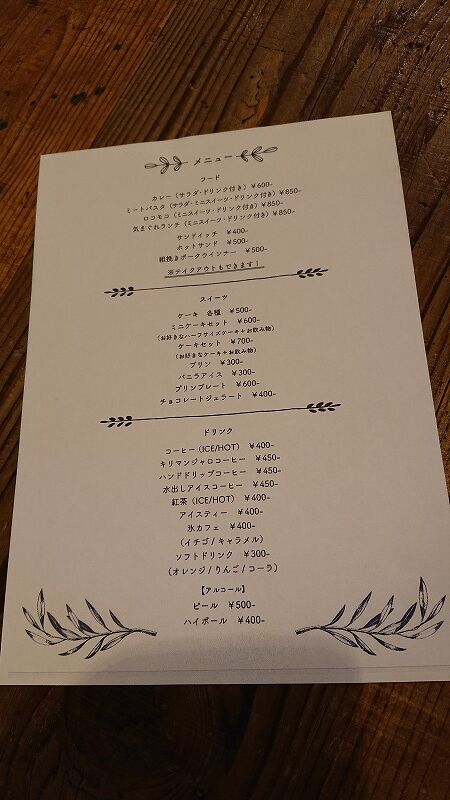 メニュー
フード
カレー（サラダ・ドリンク付き）￥600-
ミートパスタ（サラダ・ミニスイーツ・ドリンク付き）￥850-
ロコモコ（ミニスイーツ・ドリンク付き）￥850-
気まぐれランチ（ミニスイーツ・ドリンク付き）￥850-
サンドイッチ ￥400-
ホットサンド ￥500-
粗挽きポークウインナー ￥500-
※テイクアウトもできます！
スイーツ
ケーキ 各種 ￥500-
ミニケーキセット ￥600-
（お好きなハーフサイズケーキ＋お飲み物）
ケーキセット ￥700-
（お好きなケーキ＋お飲み物）
プリン ￥300-
バニラアイス ￥300-
プリンプレート ￥600-
チョコレートジェラート ￥400-
ドリンク
コーヒー（ICE/HOT） ￥400-
キリマンジャロコーヒー ￥450-
ハンドドリップコーヒー ￥450-
水出しアイスコーヒー ￥450-
紅茶（ICE/HOT） ￥400-
アイスティー ￥400-
氷カフェ ￥400-
（イチゴ / キャラメル）
ソフトドリンク ￥300-
（オレンジ / りんご / コーラ）
【アルコール】
ビール ￥500-
ハイボール ￥400-